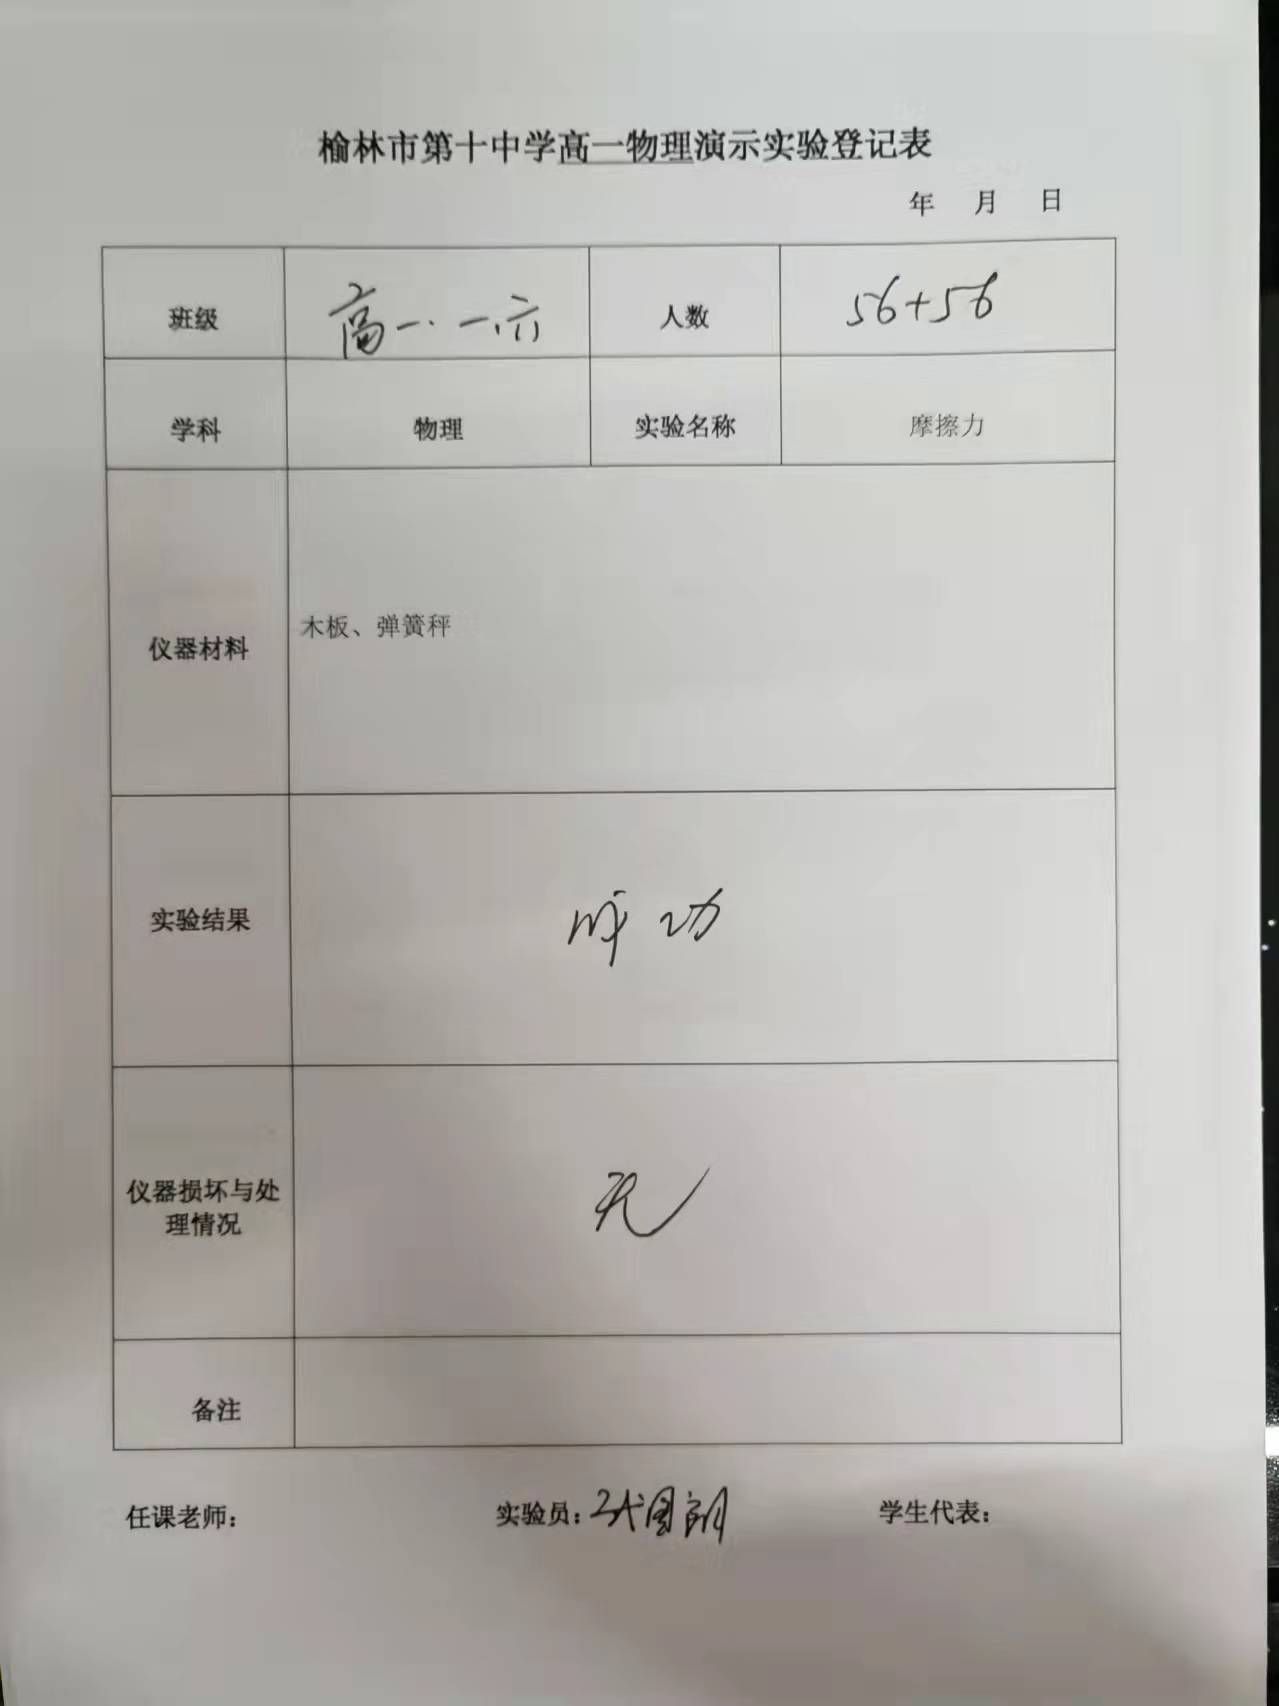 榆林市第十中学高一物理演示实验登记表
年 月 日
班级 高一.一.六 人数 56+56
学科 物理 实验名称 摩擦力
仪器材料 木板、弹簧秤
实验结果 成功
仪器损坏与处
理情况 无
备注
任课老师: 实验员: 学生代表: